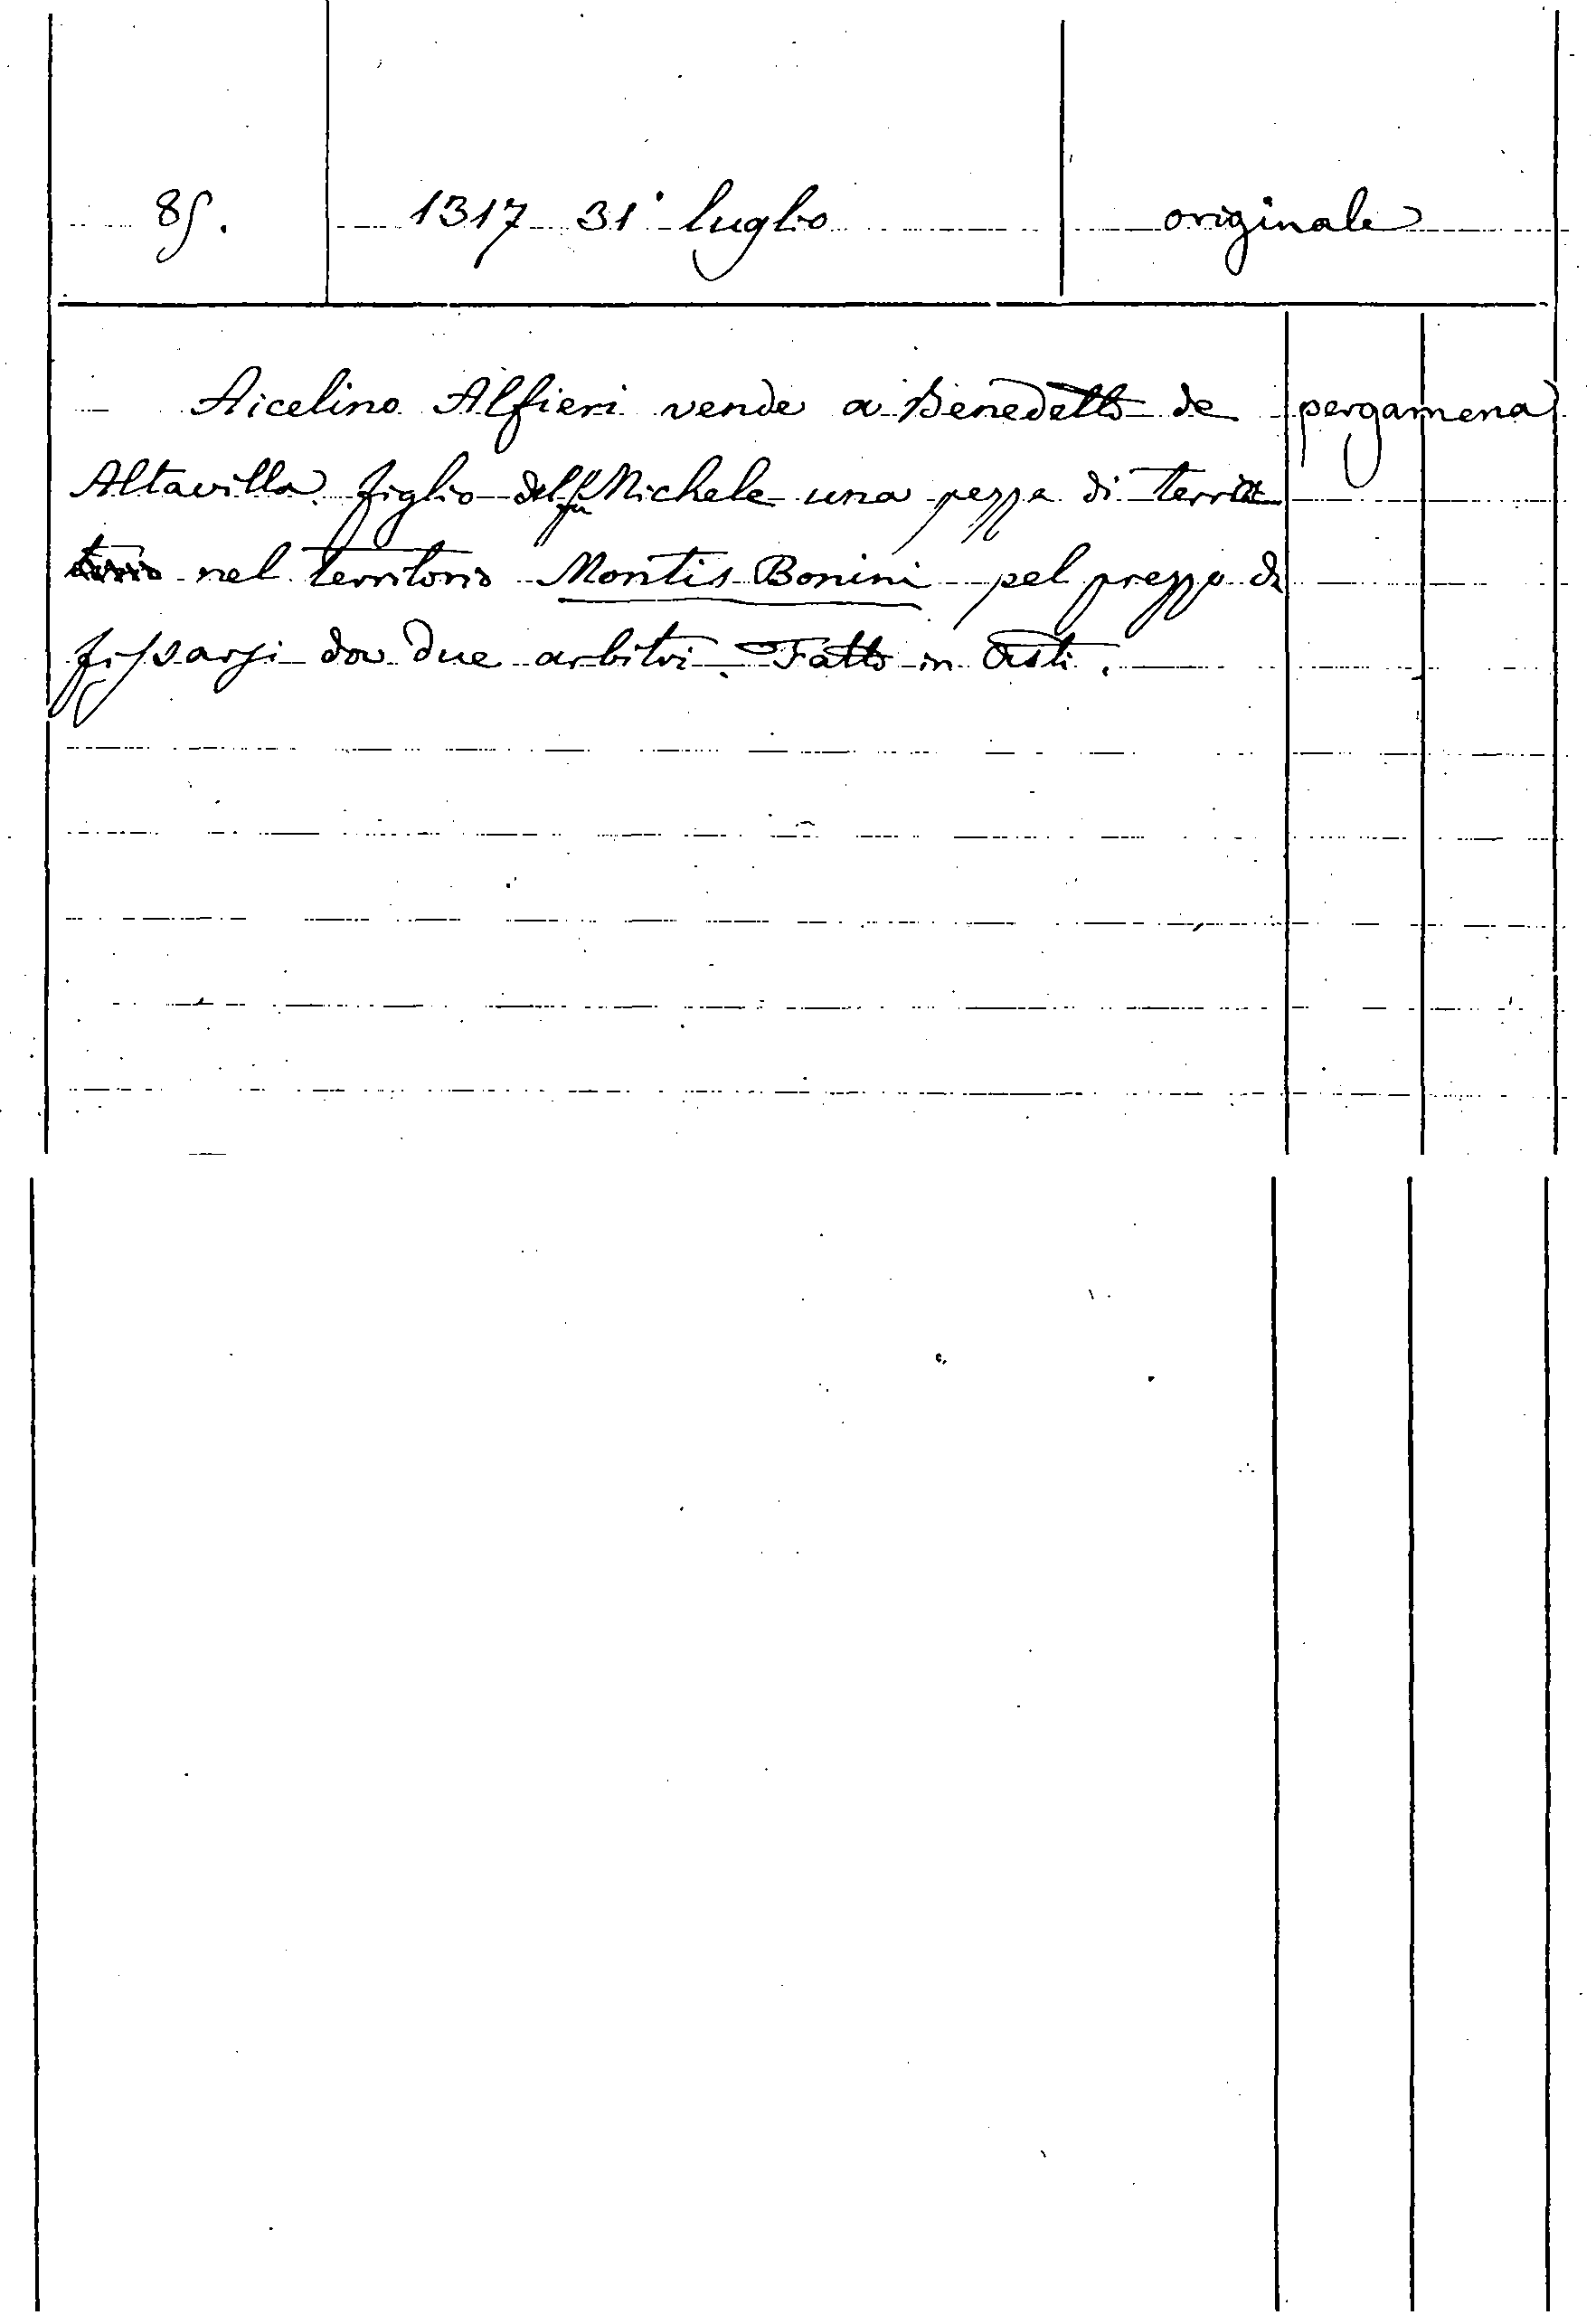 85. 1317 31 luglio originale
Aicelino Alfieri vende a Benedetto de pergamena
Altavilla figlio del fu Michele una pezza di terra
nel territorio Montis Bonini pel prezzo da
fissarsi da due arbitri. Fatto in Asti.